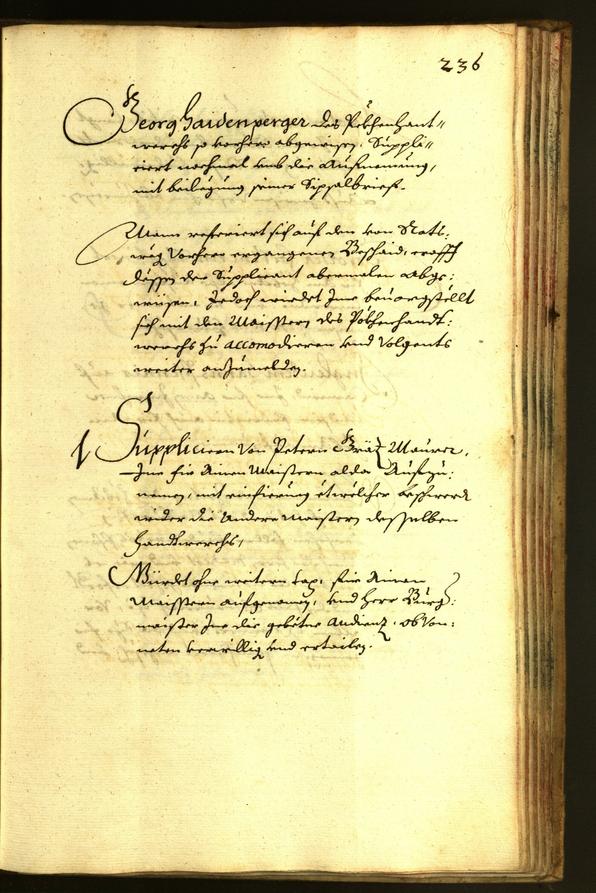 236
Georg Haidenperger des Pökhenhant„
werchs so vorhero abgewisen, Suppli„
ciert nochmal umb die Aufnemung,
mit beilegung seiner Gepsalbrief.
Mann referiert sich auf den von Stats„
weg Vorhero ergangenen Beschaid, crafft
dessen der Supplicant abermalen abge„
wisen, Jedoch wirdet Ime bevorgstellt
sich mit den Maistern des Pökhenhandt„
werchs zu accomodieren und Volgents
weiter anzumelden.
Supplicieren Von Petern Gräz Maurer,
Ime für Ainen Maistern alda Aufzu„
nemen, mit einfierung etwelcher beschwerd
wider die Andere Maistern desselben
Handtwerchs,
Würdet ohne weitern tax, für Ainen
Maistern aufgenomen, und Herr Burg„
maister Ime die gebetne Audienz, ob Von„
neten verwillig und ertailen.